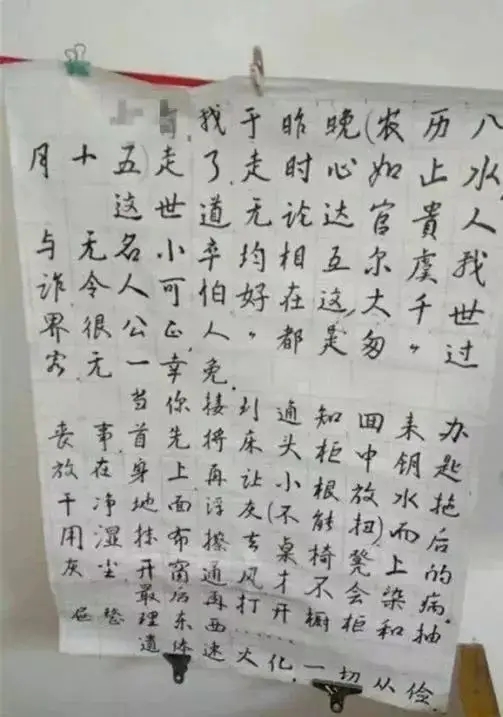 找于昨晚(农历八
月十五)走了.走时心如止水,
这世道无论达官貴人
与无名小卒均相互尔虞我
诈令人可怕好在这大千世
界很公正,人〃都是匆〃过
客无一幸免.
当你接到通知回来办
丧事首先将床头柜中钥匙
放在身上再让小根放水拖
干净地面浮灰(不能扭)而后
用湿抹布擦去桌椅凳上的
灰尘开窗通风才不会染病.
最后再打开橱柜和抽
屉整理东西……
遗体速火化一切从俭.